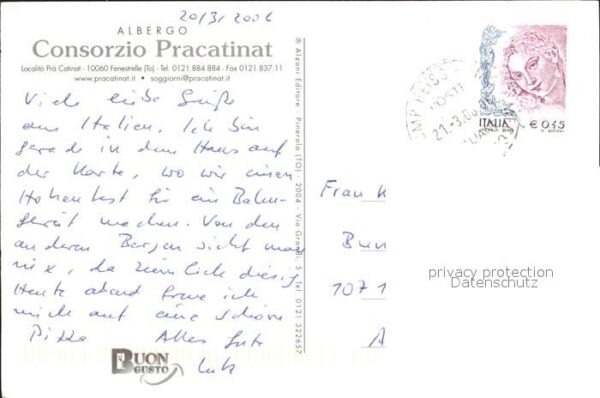 20/3/2006
ALBERGO
Consorzio Pracatinat
Località Prà Catinat - 10060 Fenestrelle (To) - Tel. 0121.884.884 - Fax 0121.837.11
www.pracatinat.it • soggiorni@pracatinat.it
Viele liebe Grüße
aus Italien. Ich bin
gerade in dem Haus auf
der Karte, wo wir einen
Höhentest für ein Bahn-
gerät machen. Von den
anderen Bergen sieht man
nix, da ziemlich diesig
Heute abend freue ich
mich auf eine schöne
Pizza Alles Gute
Lutz
BUON
GUSTO
® Alzani Editore - Pinerolo (TO) - 2004 - Via Grandi, 5 - Tel. 0121 322657
21.-3.06
ITALIA
€ 0,45
Frau K
Bun
1071
A
privacy protection
Datenschutz